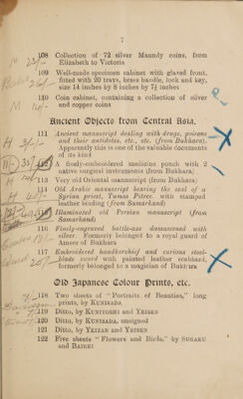 7
108 Collection of 72 silver Maundy coins, from
Elizabeth to Victoria
109 Well-made specimen cabinet with glazed front,
fitted with 20 trays, brass handle, lock and key,
size 14 inches by 8 inches by 7½ inches
110 Coin cabinet, containing a collection of silver
and copper coins
Ancient Objects from Central Asia.
111 Ancient manuscript dealing with drugs, poisons
and their antidotes, etc., etc. (from Bukhara).
Apparently this is one of the valuable documents
of its kind
112 A finely-embroidered medicine pouch with 2
native surgical instruments (from Bukhara)
113 Very old Oriental manuscript (from Bukhara)
114 Old Arabic manuscript bearing the seal of a
Syrian priest, Tumas Pitree. with stamped
leather binding (from Samarkand)
115 Illuminated old Persian manuscript (from
Samarkand)
116 Finely-engraved battle-axe damascened with
silver. Formerly belonged to a royal guard of
Ameer of Bokhara
117 Embroidered handkerchief and curious steel-
blade sword with painted leather scabbard,
formerly belonged to a magician of Bukhara
Old Japanese Colour Prints, etc.
118 Two sheets of "Portraits of Beauties," long
prints, by KUNISADA.
119 Ditto, by KUNIYOSHI and YEISEN
120 Ditto, by KUNISADA, unsigned
121 Ditto, by YEIZAN and YEISEN
122 Five sheets "Flowers and Birds," by SUGAKU
and BAIREI